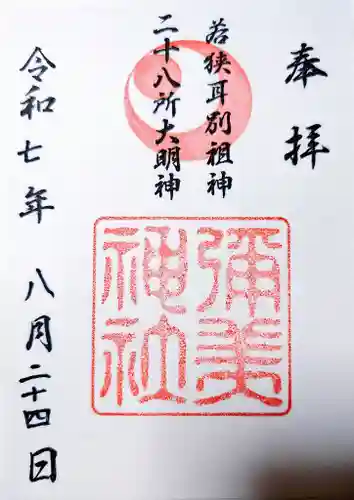 奉拝
若狭耳別祖神
二十八所大明神
彌美
神社
令和七年 八月二十四日